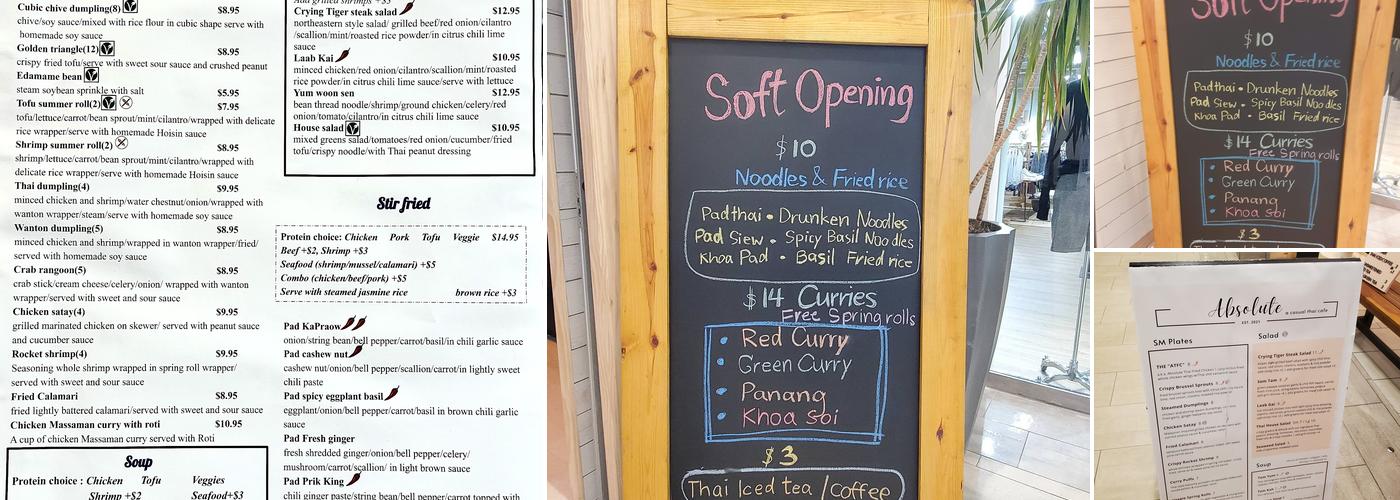 Cubic chive dumpling(8) $8.95
chive/soy sauce/mixed with rice flour in cubic shape serve with
homemade soy sauce
Golden triangle(12) $8.95
crispy fried tofu/serve with sweet sour sauce and crushed peanut
Edamame bean
steam soybean sprinkle with salt $5.95
Tofu summer roll(2) $7.95
tofu/lettuce/carrot/bean sprout/mint/cilantro/wrapped with delicate
rice wrapper/serve with homemade Hoisin sauce
Shrimp summer roll(2) $8.95
shrimp/lettuce/carrot/bean sprout/mint/cilantro/wrapped with
delicate rice wrapper/serve with homemade Hoisin sauce
Thai dumpling(4) $9.95
minced chicken and shrimp/water chestnut/onion/wrapped with
wanton wrapper/steam/serve with homemade soy sauce
Wanton dumpling(5) $8.95
minced chicken and shrimp/wrapped in wanton wrapper/fried/
served with homemade soy sauce
Crab rangoon(5) $8.95
crab stick/cream cheese/celery/onion/ wrapped with wanton
wrapper/served with sweet and sour sauce
Chicken satay(4) $9.95
grilled marinated chicken on skewer/ served with peanut sauce
and cucumber sauce
Rocket shrimp(4) $9.95
Seasoning whole shrimp wrapped in spring roll wrapper/
served with sweet and sour sauce
Fried Calamari $8.95
fried lightly battered calamari/served with sweet and sour sauce
Chicken Massaman curry with roti $10.95
A cup of chicken Massaman curry served with Roti
Soup
Protein choice : Chicken Tofu Veggies
Shrimp +$2 Seafood+$3
Crying Tiger steak salad $12.95
northeastern style salad/ grilled beef/red onion/cilantro
/scallion/mint/roasted rice powder/in citrus chili lime
sauce
Laab Kai $10.95
minced chicken/red onion/cilantro/scallion/mint/roasted
rice powder/in citrus chili lime sauce/serve with lettuce
Yum woon sen $12.95
bean thread noodle/shrimp/ground chicken/celery/red
onion/tomato/cilantro/in citrus chili lime sauce
House salad $10.95
mixed greens salad/tomatoes/red onion/cucumber/fried
tofu/crispy noodle/with Thai peanut dressing
Stir fried
Protein choice: Chicken Pork Tofu Veggie $14.95
Beef +$2, Shrimp +$3
Seafood (shrimp/mussel/calamari) +$5
Combo (chicken/beef/pork) +$5
Serve with steamed jasmine rice brown rice +$3
Pad KaPraow
onion/string bean/bell pepper/carrot/basil/in chili garlic sauce
Pad cashew nut
cashew nut/onion/bell pepper/scallion/carrot/in lightly sweet
chili paste
Pad spicy eggplant basil
eggplant/onion/bell pepper/carrot/basil in brown chili garlic
sauce
Pad Fresh ginger
fresh shredded ginger/onion/bell pepper/celery/
mushroom/carrot/scallion/ in light brown sauce
Pad Prik King
chili ginger paste/string bean/bell pepper/carrot topped with
Soft Opening
$10
Noodles & Fried rice
Padthai • Drunken Noodles
Pad Siew • Spicy Basil Noodles
Khoa Pad • Basil Fried rice
$14 Curries
Free Spring rolls
• Red Curry
• Green Curry
• Panang
• Khoa Soi
$3
Thai Iced tea / Coffee
Soft Opening
$10
Noodles & Fried rice
Padthai • Drunken Noodles
Pad Siew • Spicy Basil Noodles
Khoa Pad • Basil Fried rice
$14 Curries
Free Spring rolls
• Red Curry
• Green Curry
• Panang
• Khoa Soi
$3
Absolute a casual thai cafe
EST. 2021
SM Plates
THE "ATFC"
Crispy Brussel Sprouts
Steamed Dumplings
Chicken Satay
Fried Calamari
Crispy Rocket Shrimp
Curry Puffs
Salad
Crying Tiger Steak Salad
Som Tam
Laab Gai
Thai House Salad
Seaweed Salad
Soup